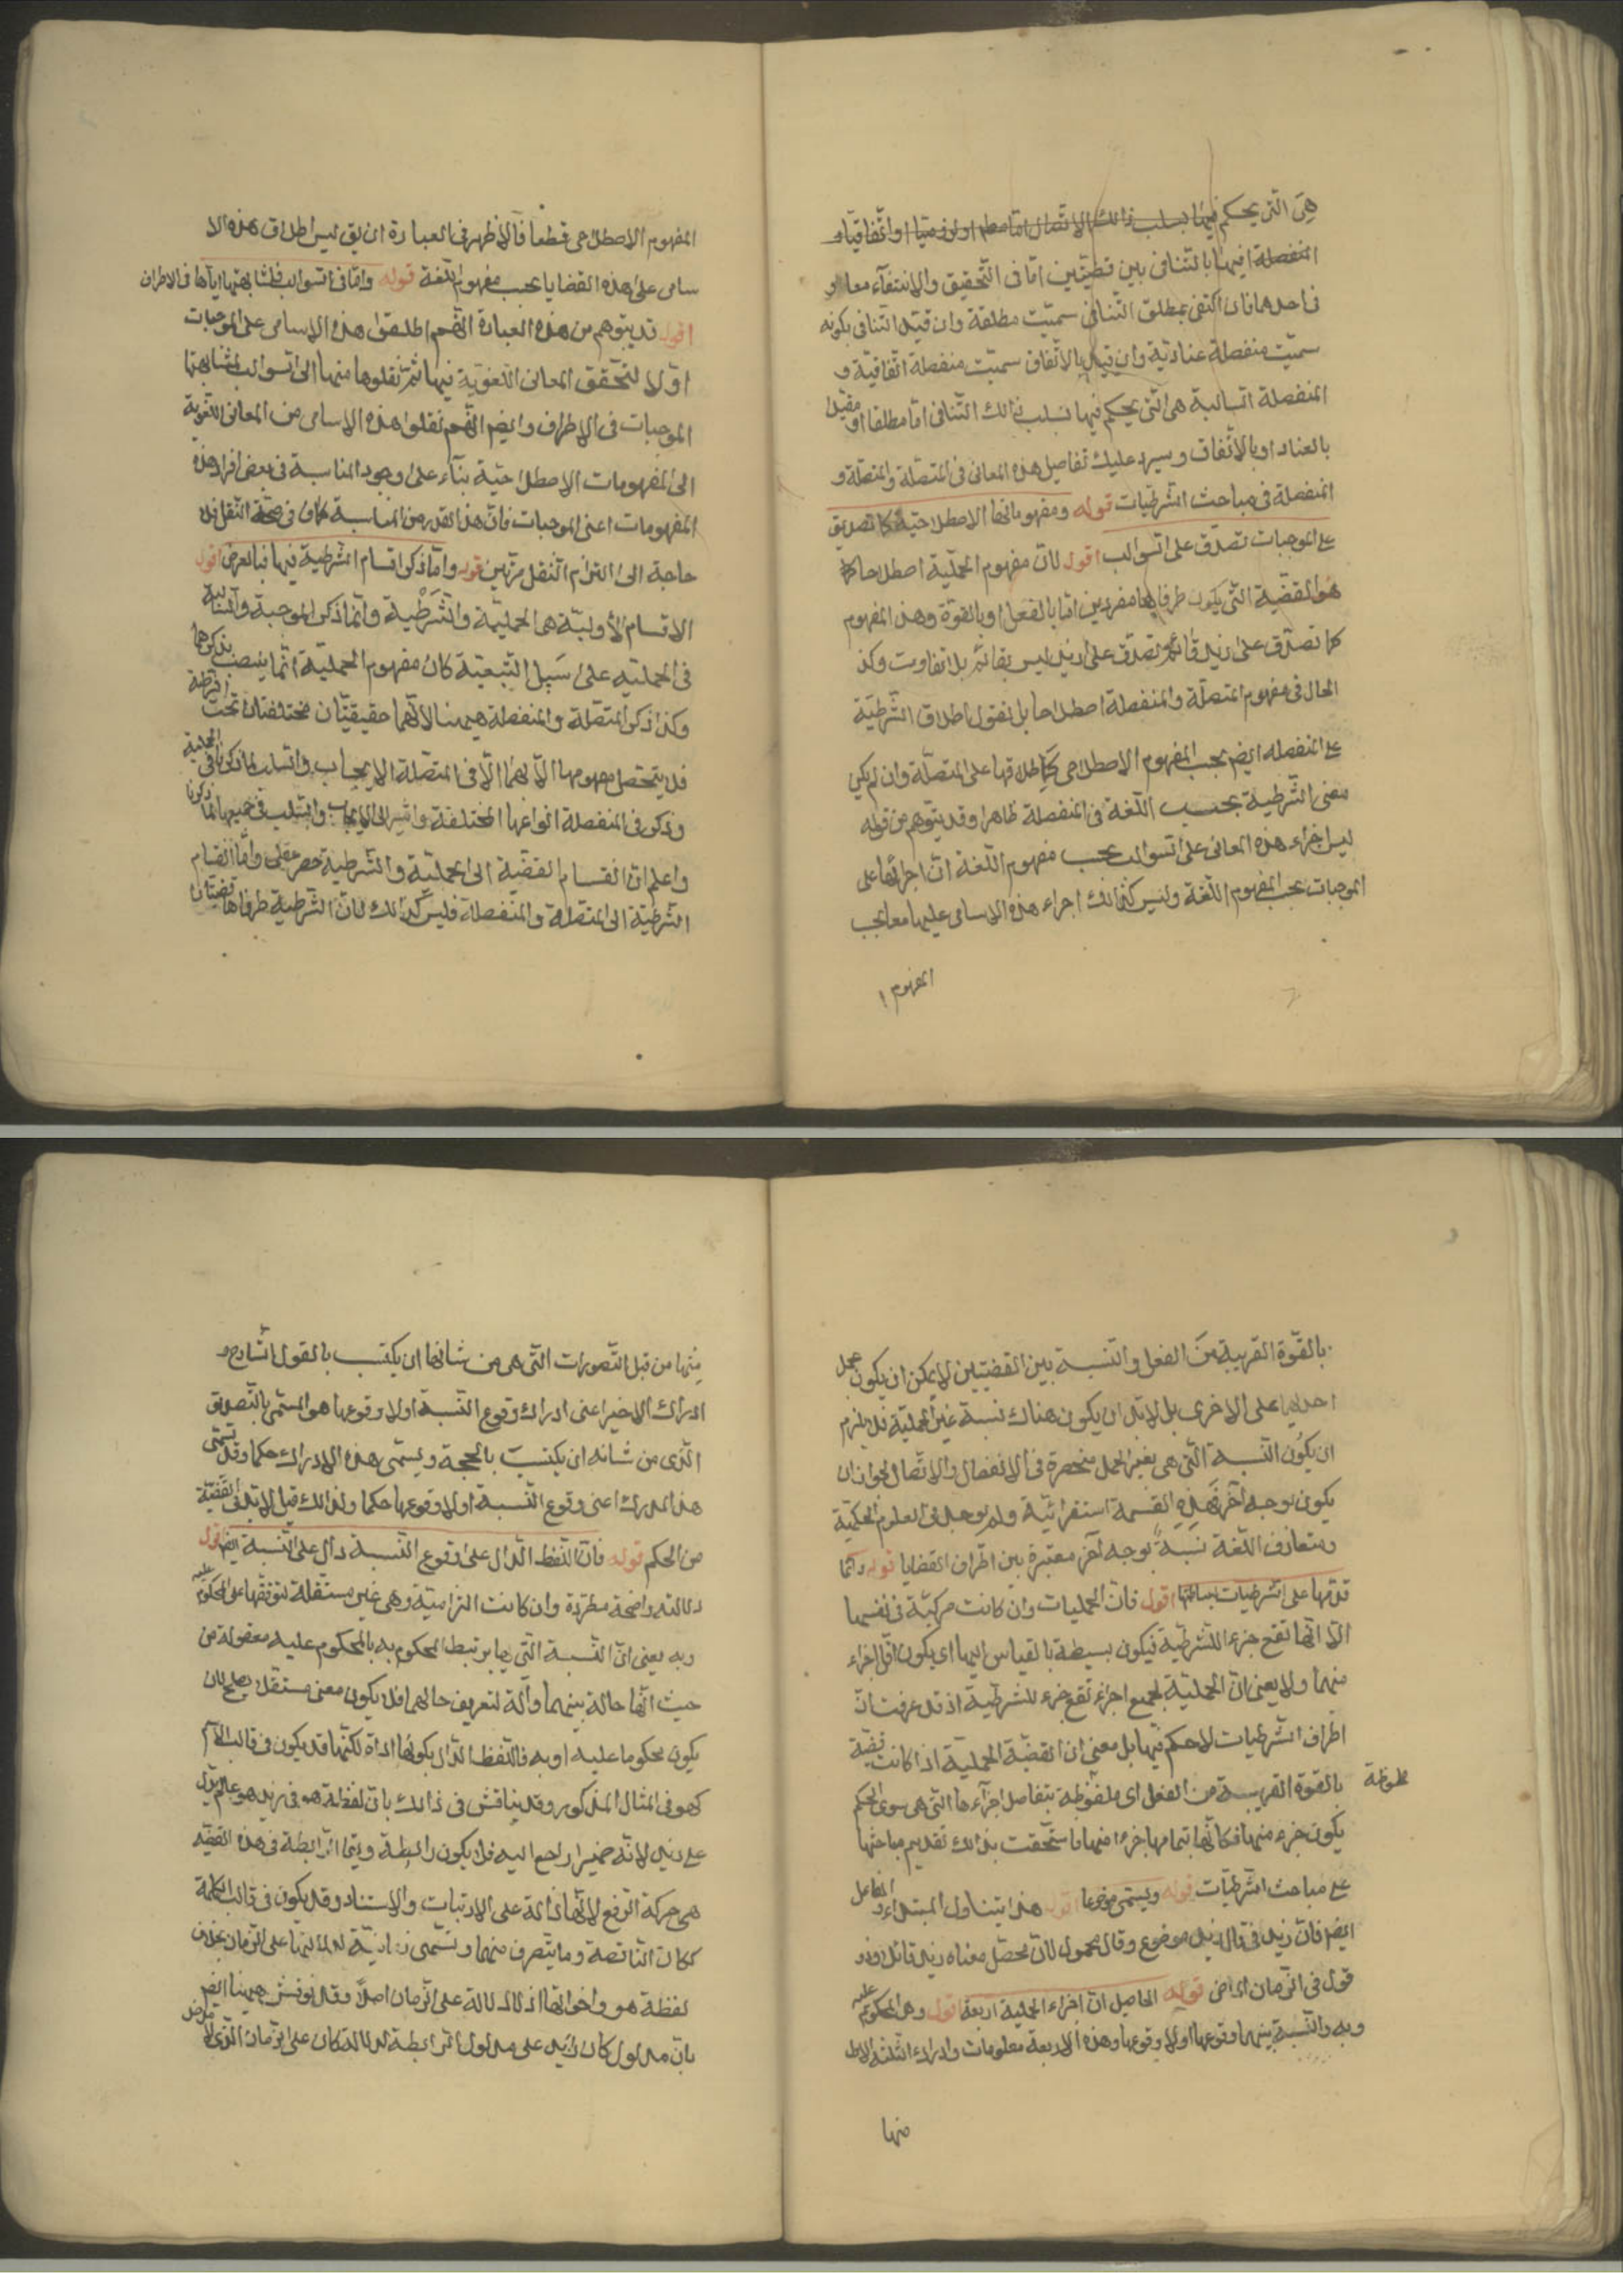 هى التى يحكم فيها بسلب ذالك الاتصال اما مطلقا او لزوميا او اتفاقيا و
المنفصلة فيها بالتنافى بين قضيتين اما فى التحقيق والانتفآء معا او
فى احدهما فان اكتفى بمطلق التنافى سميت مطلقة وان قيد التنافى بكونه
سميت منفصلة عنادية وان قيد بالاتفاق سميت منفصلة اتفاقية و
المنفصلة السالبة هى التى يحكم فيها بسلب ذالك التنافى اما مطلقا او مقيدا
بالعناد او بالاتفاق وسيرد عليك تفاصيل هذه المعانى فى المتصلة والمتصلة و
المنفصلة فى مباحث الشرطيات قوله ومفهوماتها الاصطلاحية كما تصدق
على الموجبات تصدق على السوالب اقول لان مفهوم الحملية اصطلاحا
هو القضية التى يكون طرفاها مفردين اما بالفعل او بالقوة وهذا المفهوم
كما تصدق على زيد قائم تصدق على زيد ليس بقائم بلا تفاوت وكذا
الحال فى مفهوم المتصلة والمنفصلة اصطلاحا بل نقول اطلاق الشرطية
على المنفصله ايضا بحسب المفهوم الاصطلاحى كاطلاقها على المتصلة وان لم يكن
معنى الشرطية بحسب اللغة فى المنفصلة ظاهرا وقد يتوهم من قوله
ليس اجراء هذه المعانى على السوالب بحسب مفهوم اللغة ان اجرائها على
الموجبات بحسب المفهوم اللغة وليس كذالك اجراء هذه الاسامى عليها معا بحسب
المفهوم
المفهوم الاصطلاحى قطعا فالاظهر فى العبارة ان يق ليس اطلاق هذه الا
سامى على هذه القضايا بحسب مفهوم اللغة قوله واما فى السوالب فلمشابهتها اياها فى الاطراف
اقول قد يتوهم من هذه العبارة انهم اطلقوا هذه الاسامى على الموجبات
اولا لتحقق المعانى اللغوية فيها ثم نقلوها منها الى السوالب لمشابهتها
الموجبات فى الاطراف وايضا انهم نقلوا هذه الاسامى من المعانى اللغوية
الى المفهومات الاصطلاحية بنآء على وجود المناسبة فى بعض افراد هذه
المفهومات اعنى الموجبات فان هذا القدر من المناسبة كاف فى صحة النقل فلا
حاجة الى التزام النقل مرتين قوله واما ذكر اقسام الشرطية فيها فبالعرض اقول
الاقسام الاولية هى الحملية والشرطية وانما ذكر الموجبة والسالبة
فى الحمليه على سبيل التبعية كان مفهوم الحملية انما يتبصب بذكرهما
وكذا ذكر المتصلة والمنفصلة هيهنا لانهما حقيقتان مختلفتان تحت الشرطية
فلا يتحصل مفهومها الا بهما الا فى المتصلة الايجاب والسلب لما ذكرنا فى الحملية
وذكر فى المنفصلة انواعها المختلفة واشير الى الايجاب والسلب فى جميعها لما ذكرنا
واعلم ان انقسام القضية الى الحملية والشرطية حصر عقلى واما انقسام
الشرطية الى المتصلة والمنفصلة فليس كذالك لان الشرطية طرفاها قضيتان
بالقوة القريبة من الفعل والنسبة بين القضيتين لا يمكن ان يكون بحمل
احديهما على الاخرى بل لا بد ان يكون هناك نسبة غير الحملية فلا يلزم
ان يكون النسبة التى هى بغير الحمل منحصرة فى الانفصال والاتصال لجواز ان
يكون بوجه آخر فهذه القسمة استقرائية ولم يوجد فى العلوم الحكمية
ومتعارف اللغة نسبة بوجه آخر معتبرة بين اطراف القضايا قوله وانما
قدمها على الشرطيات لبساطتها اقول فان الحمليات وان كانت مركبة فى نفسها
الا انها تقع جزء للشرطية فيكون بسيطة بالقياس اليها اى يكون اقل اجزاء
منهما ولا يعنى ان الحملية بجميع اجزاء تقع جزء للشرطية اذ قد عرفت ان
اطراف الشرطيات لا حكم فيها بل معنى ان القضية الحملية اذا كانت قضية
بالقوة القريبة من الفعل اى ملفوظة بتفاصيل اجزآءها التى هى سوى الحكم
ملحوظة
يكون جزء منها فكانها بتمامها جزءا منها فاستحقت بذالك تقديم مباحثها
على مباحث الشرطيات قوله ويسمى موضوعا اقول هذا يتناول المبتداء و الفاعل
ايضا فان زيد فى قال زيد موضوع وقال محمول لان محصل معناه زيد قائل او ذو
قول فى الزمان الماضى قوله الحاصل ان اجزاء الحملية اربعة اقول وهى المحكوم عليه
وبه والنسبة بينهما وقوعها او لا وقوعها وهذه الاربعة معلومات وادراك الثلثة الاول
منها
منها من قبل التصورات التى هى من شانها ان يكتسب بالقول الشارح و
ادراك الاخير اعنى ادراك وقوع النسبة او لا وقوعها هو المسمى بالتصديق
الذى من شانه ان يكتسب بالحجة ويسمى هذه الادراك حكما وقد يسمى
هذا المدرك اعنى وقوع النسبة او لا وقوعها حكما ولذالك قيل لا بد فى القضية
من الحكم قوله فان اللفظ الدال على وقوع النسبة دال على النسبة ايضا اقول
دلالته واضحة مطردة وان كانت التزامية وهى غير مستقلة لتوقفها على المحكوم عليه
وبه يعنى ان النسبة التى بها يرتبط المحكوم به بالمحكوم عليه معقولة من
حيث انها حالة بينهما وآلة لتعريف حالهما فلا يكون معنى مستقلا يصلح لان
يكون محكوما عليه او به فاللفظ الدال يكونها اداة لكنها قد يكون فى قالب الاسم
كهو فى المثال المذكور وقد يناقش فى ذالك بان لفظة هو فى زيد هو عالم يدل
على زيد لانه ضمير راجع اليه فلا يكون رابطة وانما الرابطة فى هذه القضية
هى حركة الرفع لانها دالة على الارتباط والاستناد وقد يكون فى قالب الكلمة
ككان الناقصة وما يتصرف منها وتسمى زمانية لدلالتها على الزمان بخلاف
لفظة هو واخواتها اذ لا دلالة على الزمان اصلا وقد نوقش هيهنا ايضا
بان مدلول كان زايد على مدلول الرابطة لدلالة كان على الزمان الذى